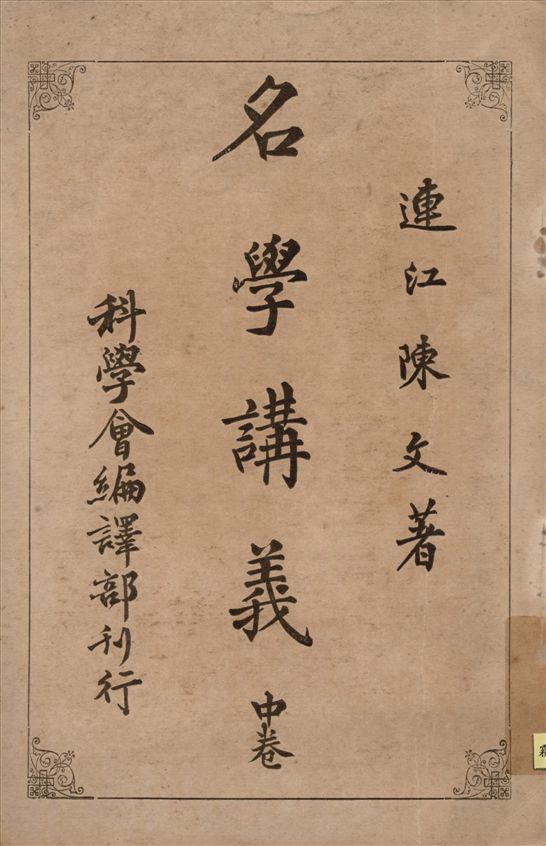 連江陳文著
名學講義 中卷
科學會編譯部刊行